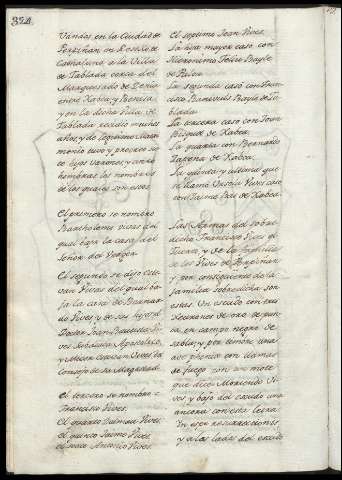 324
Vandos, en la Ciudad de
Perpiñan en Rosello de
Cathaluña a la Villa
de Tablada cerca del
Marquesado de Denia
entre Xabia y Benisa,
y en la dicha Villa de
Tablada residio muchos
años, y de legitimo Matri
monio tuvo y procreo sie
te hijos varones, y cinco
hembras los nombres
de los quales son estos.
El primero se nombro
Bartholome vives del
qual baja la casa del
Señor del Verger.
El segundo se dijo Este
van Vivas del qual ba
ja la casa de Bernar
do Vives y de sus hijos el
Doctor Juan Bautista Vi
ves Notario Apostolico,
y Micer Estevan Vives del
Consejo de su Magestad.
El tercero se nombro
Francisco Vives.
El quarto Dalmau Vives.
el quinto Jaime Vives.
el sexto Antonio Vives.
El septimo Joan Vives.
La hija mayor casó con
Hieronimo Feliu Bayle
de
La segunda casó con Fran
cisco Banyuls Bayle de Ta
blada.
La tercera casó con Joan
de Xabea.
La quarta con Bernardo
Zapena de Xabea.
La quinta y ultima que
se llamó Ursola Vives casó
con Jaime Pau de Xabea.
Las Armas del sobre
dicho Francisco Vives
fueron, y de la familia
de los Vives de Perpiñan
y por consiguiente de la
familia sobredicha son
estas. Un escudo con tres
de oro de pun
ta, en campo negro de
sable, y por timbre una
ave phenix con llamas
de fuego con un mote
que dice Moriendo Vi
ves, y bajo del escudo una
ancora con esta letra
In spe resurrectionis
y a los lados del escudo